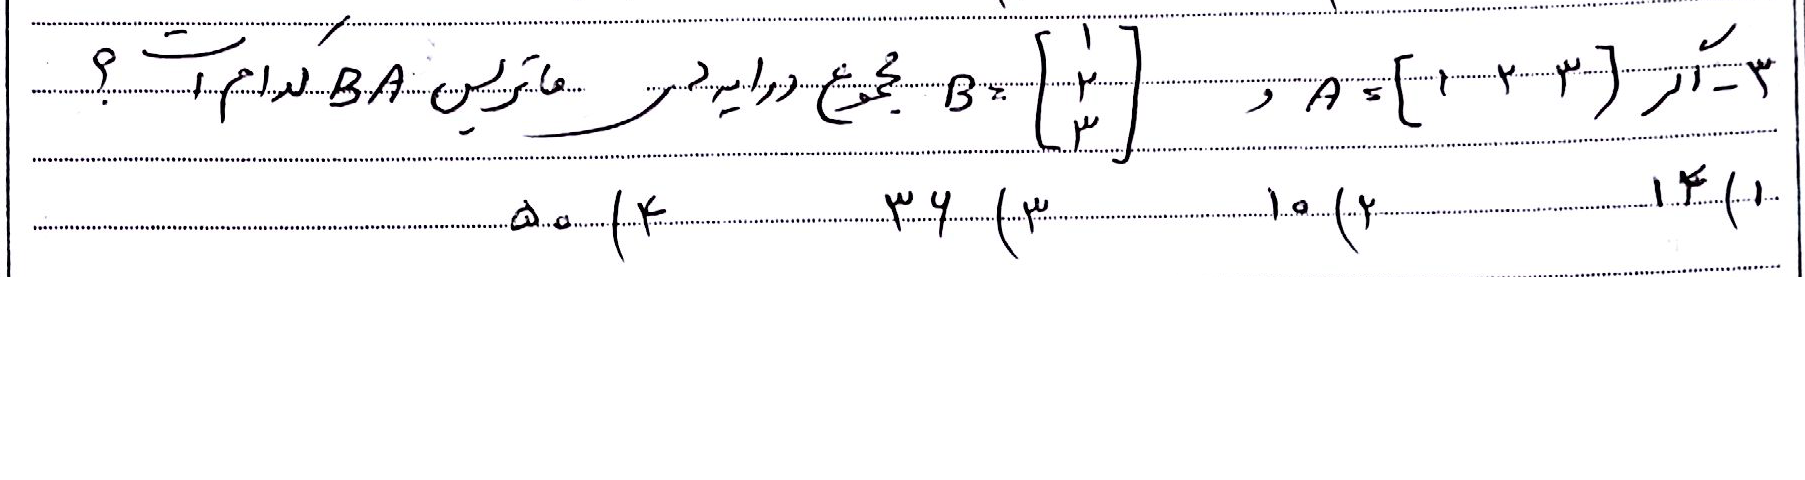 ۳- اگر A = [۱ ۲ ۳] و B = [۱ ۲ ۳] مجموع درایه‌های ماتریس BA کدام است؟
۱) ۱۴ ۲) ۱۰ ۳) ۳۶ ۴) ۵۰